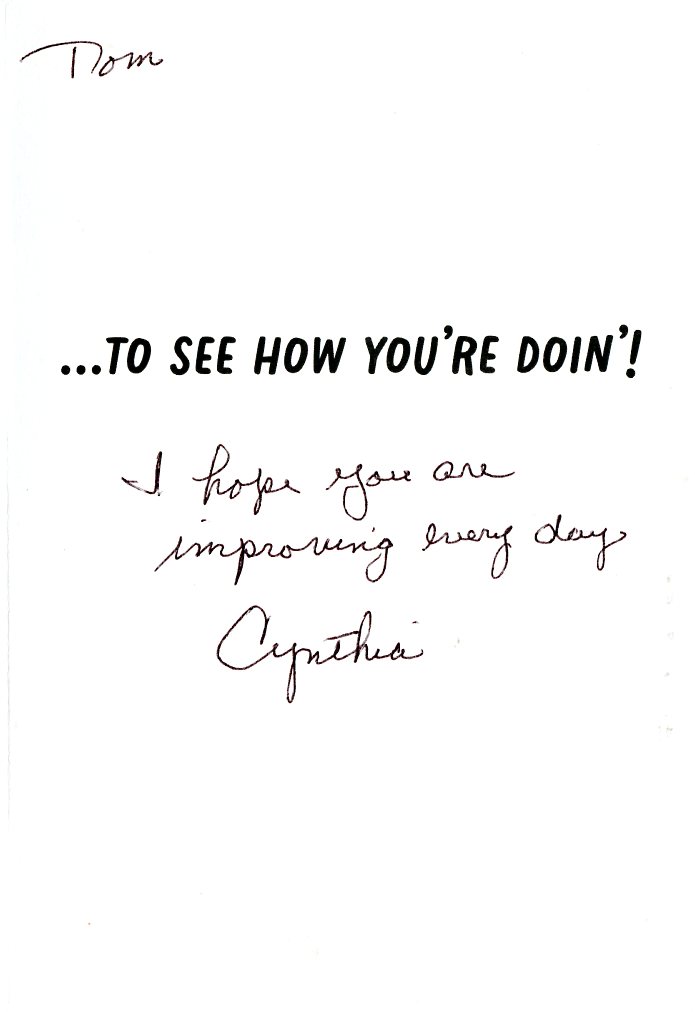 Tom
...TO SEE HOW YOU'RE DOIN'!
I hope you are
improving every day
Cynthia